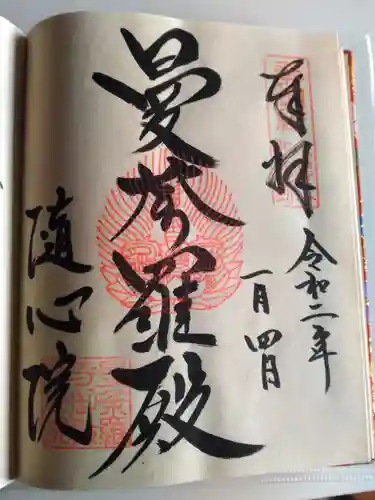 奉拝
令和二年
一月四日
曼荼羅殿
随心院